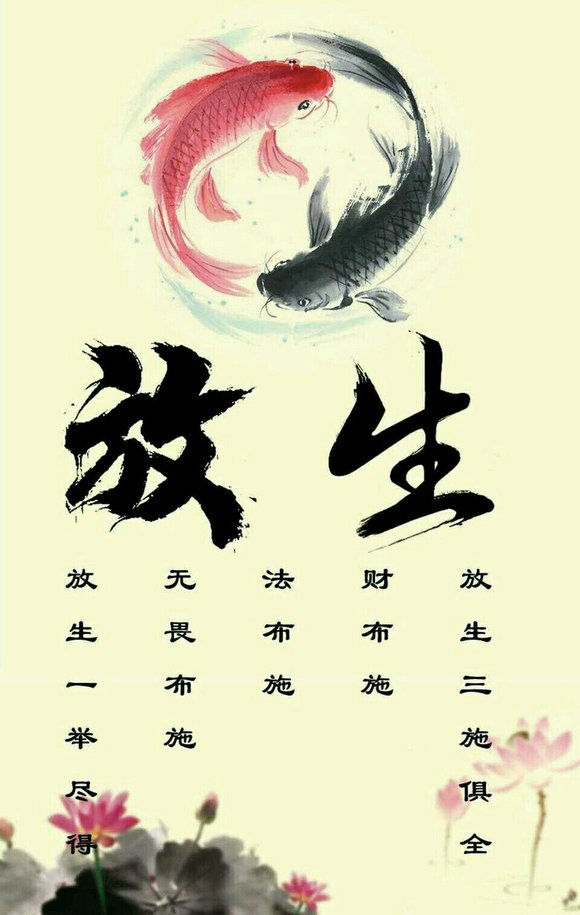 放生
放生三施俱全
财布施
法布施
无畏布施
放生一举尽得